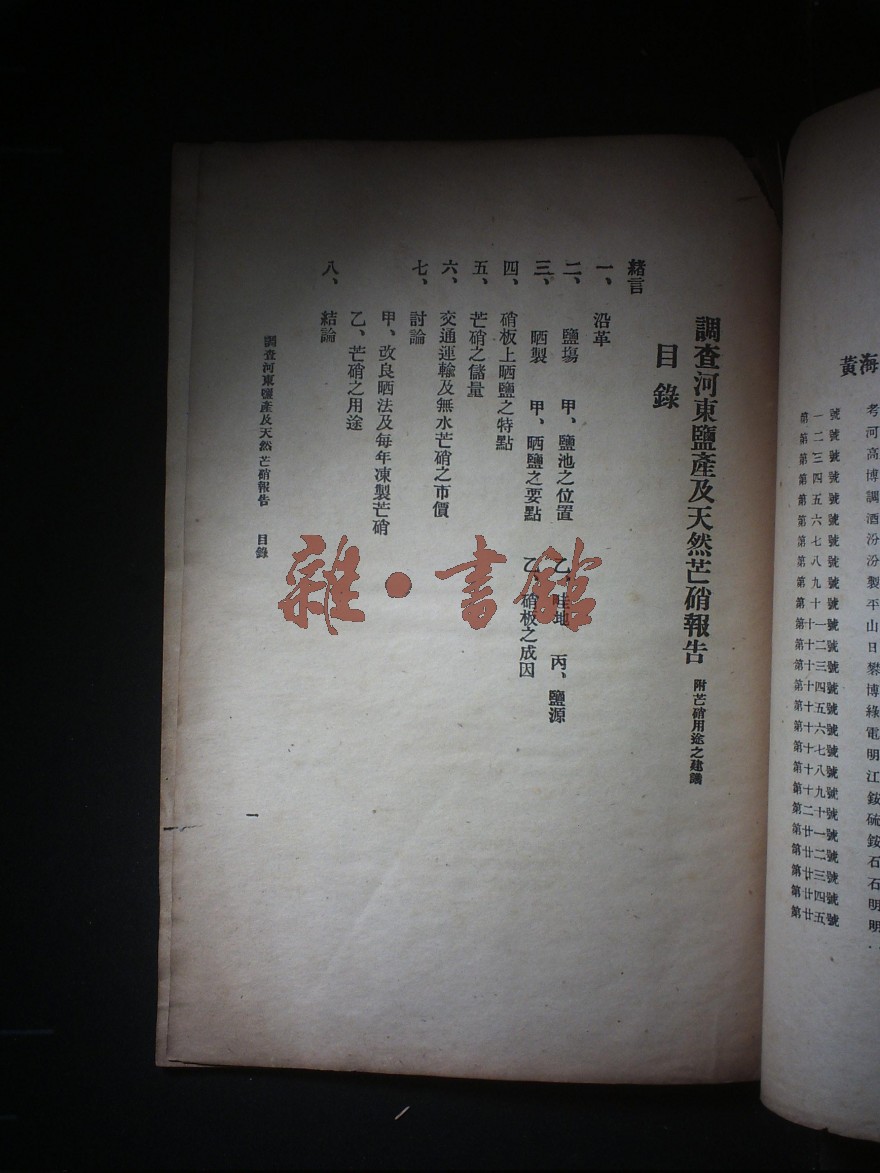 黃海
第一號 考
第二號 河
第三號 高
第四號 博
第五號 調
第六號 酒
第七號 汾
第八號 汾
第九號 製
第十號 平
第十一號 山
第十二號 日
第十三號
第十四號 博
第十五號 綠
第十六號 電
第十七號 明
第十八號 江
第十九號 銨
第二十號 硫
第廿一號 銨
第廿二號 石
第廿三號 石
第廿四號 明
第廿五號 明
調查河東鹽產及天然芒硝報告 附芒硝用途之建議
目錄
緒言
一、 沿革
二、 鹽場 甲、鹽池之位置 乙、畦地 丙、鹽源
三、 晒製 甲、晒鹽之要點 乙、硝板之成因
四、 硝板上晒鹽之特點
五、 芒硝之儲量
六、 交通運輸及無水芒硝之市價
七、 討論
甲、改良晒法及每年凍製芒硝
乙、芒硝之用途
八、 結論
調查河東鹽產及天然芒硝報告 目錄
一
雜·書館